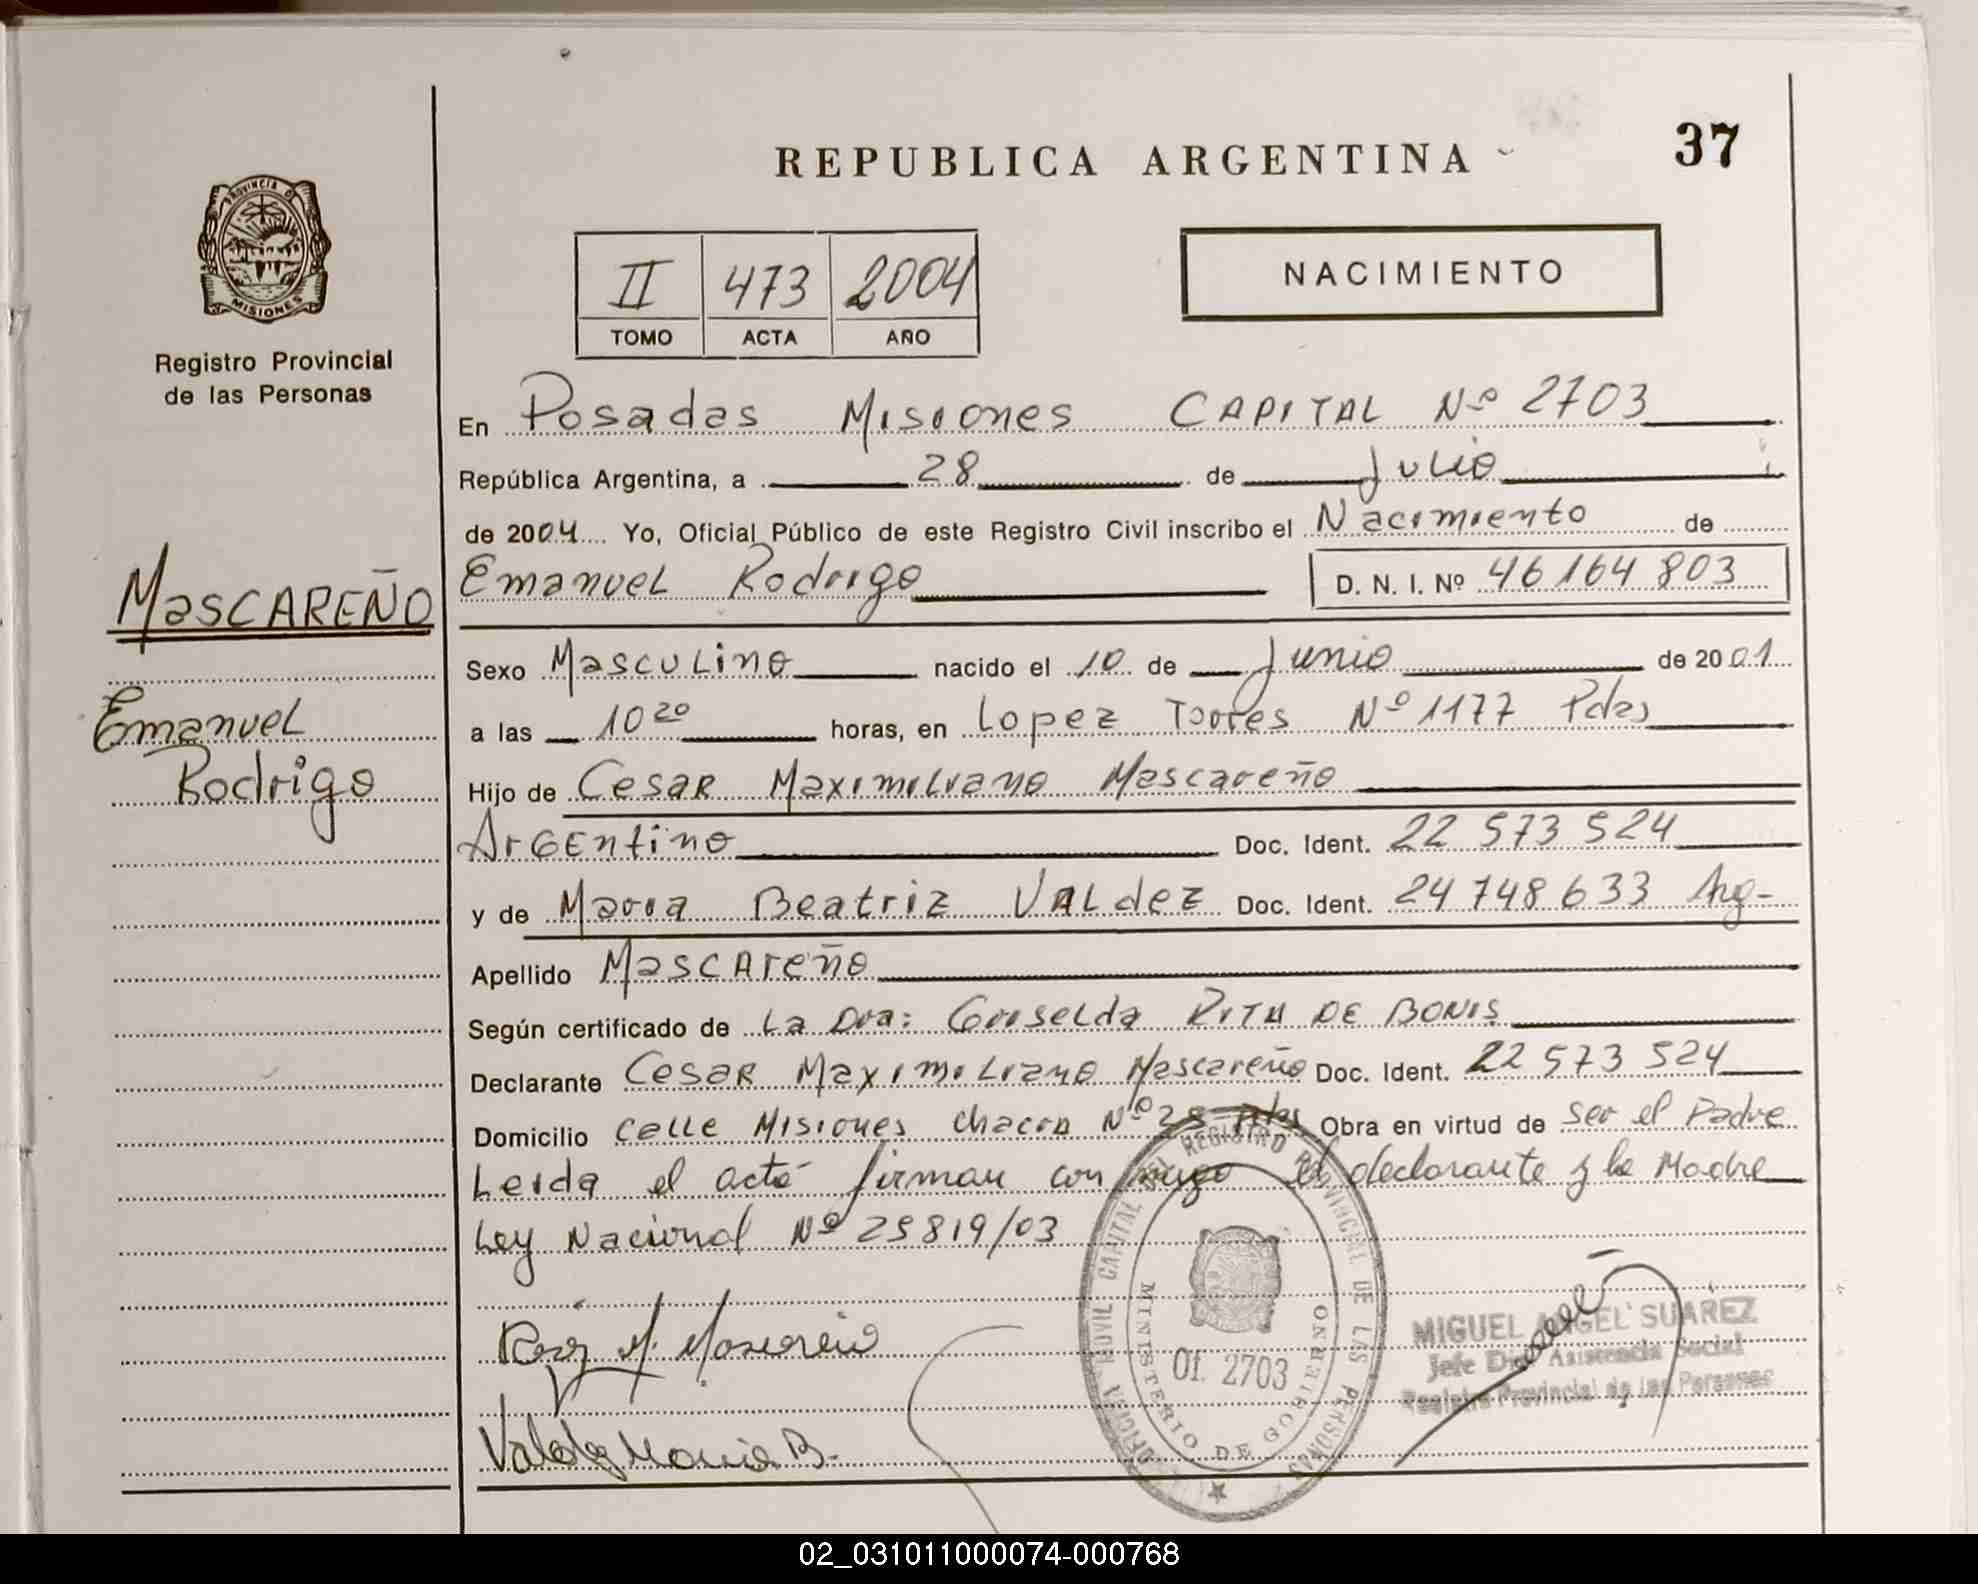 37
REPUBLICA ARGENTINA
PROVINCIA DE
MISIONES
Registro Provincial
de las Personas
II 473 2004
TOMO ACTA AÑO
NACIMIENTO
En Posadas Misiones CAPITAL Nº 2703
República Argentina, a 28 de Julio
de 2004 Yo, Oficial Público de este Registro Civil inscribo el Nacimiento de
Emanuel Rodrigo D. N. I. Nº 46 164 803
MASCAREÑO
Emanuel
Rodrigo
Sexo Masculino nacido el 10 de Junio de 2001
a las 10 20 horas, en Lopez Torres Nº 1177 Pdas
Hijo de Cesar Maximiliano Mascareño
Argentino Doc. Ident. 22 573 524
y de Maria Beatriz VALdez Doc. Ident. 24 748 633 Arg-
Apellido MascAreño
Según certificado de La Dra: Griselda RITA DE BONIS
Declarante Cesar Maximiliano Mascareño Doc. Ident. 22 573 524
Domicilio calle Misiones chacra Nº Obra en virtud de ser el Padre
Leida el acta firman con migo el declarante y la Madre
Ley Nacional Nº 25819/03
Valdez Maria B.
OFICINA MOVIL CAPITAL DEL REGISTRO PROVINCIAL DE LAS PERSONAS
MINISTERIO DE GOBIERNO
Of. 2703
MIGUEL ANGEL SUAREZ
Jefe Dpto Asistencia Social
Registro Provincial de las Personas
02_031011000074-000768